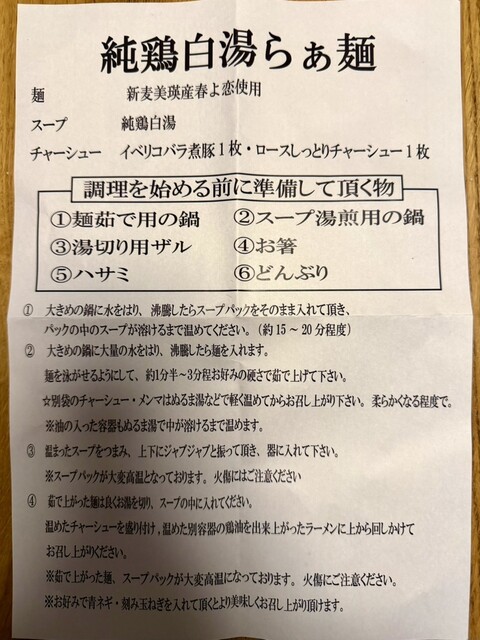 純鶏白湯らぁ麺
麺 新麦美瑛産春よ恋使用
スープ 純鶏白湯
チャーシュー イベリコバラ煮豚1枚・ロースしっとりチャーシュー1枚
調理を始める前に準備して頂く物
①麺茹で用の鍋 ②スープ湯煎用の鍋
③湯切り用ザル ④お箸
⑤ハサミ ⑥どんぶり
① 大きめの鍋に水をはり、沸騰したらスープパックをそのまま入れて頂き、
パックの中のスープが溶けるまで温めてください。(約15～20分程度)
② 大きめの鍋に大量の水をはり、沸騰したら麺を入れます。
麺を泳がせるようにして、約1分半～3分程お好みの硬さで茹で上げて下さい。
☆別袋のチャーシュー・メンマはぬるま湯などで軽く温めてからお召し上がり下さい。柔らかくなる程度で。
※油の入った容器もぬるま湯で中が溶けるまで温めます。
③ 温まったスープをつまみ、上下にジャブジャブと振って頂き、器に入れて下さい。
※スープパックが大変高温となっております。火傷にはご注意ください
④ 茹で上がった麺は良くお湯を切り、スープの中に入れてください。
温めたチャーシューを盛り付け,温めた別容器の鶏油を出来上がったラーメンに上から回しかけて
お召し上がりください。
※茹で上がった麺、スープパックが大変高温になっております。火傷にご注意ください。
※お好みで青ネギ・刻み玉ねぎを入れて頂くとより美味しくお召し上がり頂けます。